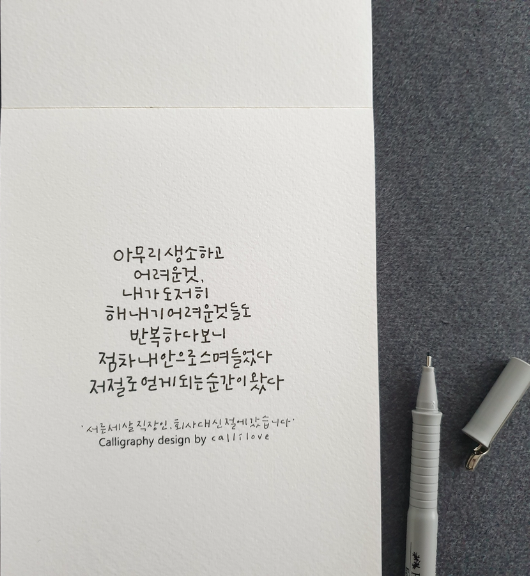 아무리 생소하고
어려운것,
내가 도저히
해내기 어려운것들도
반복하다보니
점차 내안으로 스며들었다
저절로 얻게되는 순간이 왔다
'서른세살 직장인, 회사대신 절에 갔습니다'
Calligraphy design by callilove